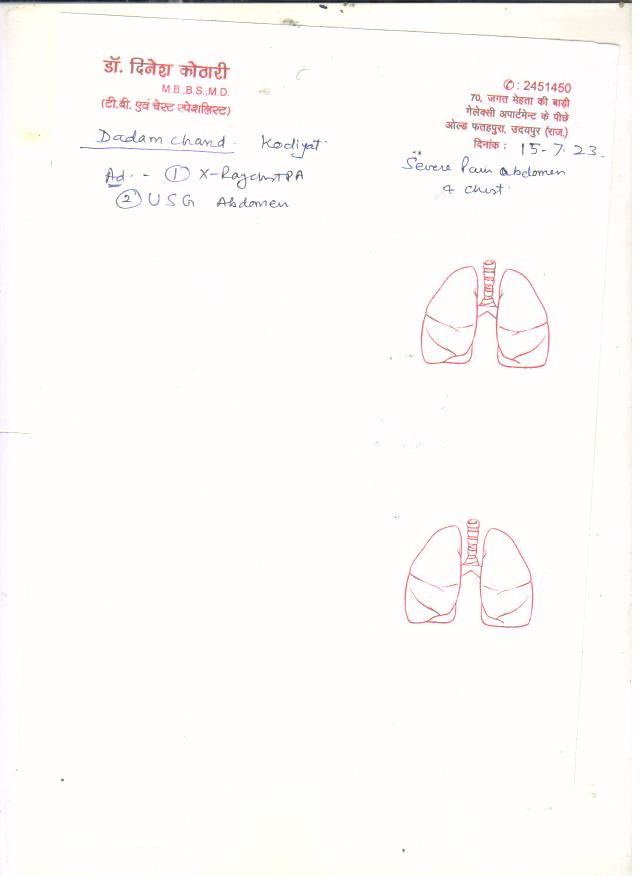 डॉ. दिनेश कोठारी
M.B.,B.S.,M.D.
(टी.बी. एवं चेस्ट स्पेशलिस्ट)
✆ : 2451450
70, जगत मेहता की बाड़ी
गेलेक्सी अपार्टमेन्ट के पीछे
ओल्ड फतहपुरा, उदयपुर (राज.)
दिनांक : 15-7-23.
Dadam chand. Kodiyat
Ad. - ① X-Ray chest PA
② USG Abdomen
Severe Pain abdomen
& chest.